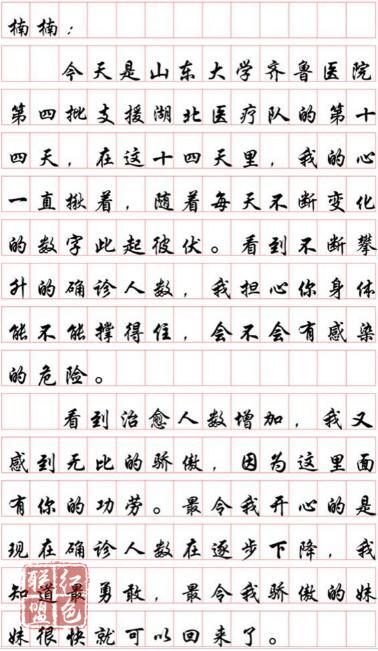 楠楠：
今天是山东大学齐鲁医院
第四批支援湖北医疗队的第十
四天，在这十四天里，我的心
一直揪着，随着每天不断变化
的数字此起彼伏。看到不断攀
升的确诊人数，我担心你身体
能不能撑得住，会不会有感染
的危险。
看到治愈人数增加，我又
感到无比的骄傲，因为这里面
有你的功劳。最令我开心的是
现在确诊人数在逐步下降，我
知道最勇敢，最令我骄傲的妹
妹很快就可以回来了。
红色
联盟